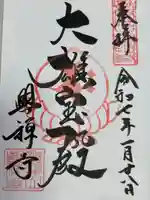 奉拝
令和七年一月十八日
大雄宝殿
興禅寺